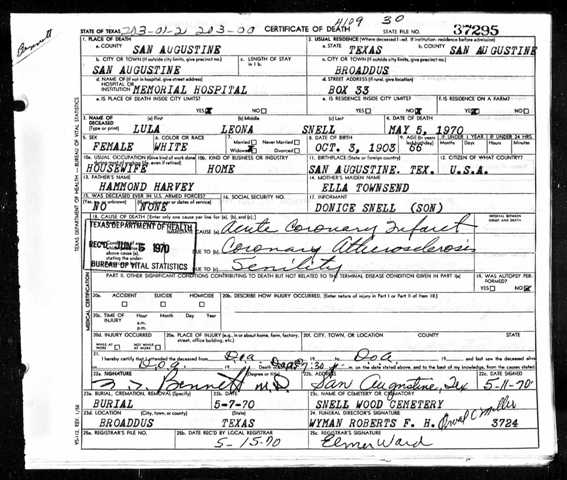 4109 30
STATE OF TEXAS 203-01-2 203-00 CERTIFICATE OF DEATH STATE FILE NO. 37295
Bennett
1. PLACE OF DEATH 2. USUAL RESIDENCE (Where deceased lived. If institution: residence before admission)
a. COUNTY a. STATE b. COUNTY
SAN AUGUSTINE TEXAS SAN AUGUSTINE
b. CITY OR TOWN (If outside city limits, give precinct no.) c. LENGTH OF STAY in 1 b. c. CITY OR TOWN (If outside city limits, give precinct no.)
SAN AUGUSTINE BROADDUS
d. NAME OF (If not in hospital, give street address) d. STREET ADDRESS (If rural, give location)
HOSPITAL OR INSTITUTION MEMORIAL HOSPITAL BOX 33
e. IS PLACE OF DEATH INSIDE CITY LIMITS? e. IS RESIDENCE INSIDE CITY LIMITS? f. IS RESIDENCE ON A FARM?
YES NO YES NO YES NO
3. NAME OF DECEASED (a) First (b) Middle (c) Last 4. DATE OF DEATH
(Type or print) LULA LEONA SNELL MAY 5, 1970
5. SEX 6. COLOR OR RACE 7. Married Never Married 8. DATE OF BIRTH 9. AGE IF UNDER 1 YEAR IF UNDER 24 HRS.
FEMALE WHITE Widowed Divorced OCT. 3, 1903 66 Months Days Hours Minutes
10a. USUAL OCCUPATION (Give kind of work done 10b. KIND OF BUSINESS OR INDUSTRY 11. BIRTHPLACE (State or foreign country) 12. CITIZEN OF WHAT COUNTRY?
HOUSEWIFE HOME SAN AUGUSTINE. TEX. U.S.A.
13. FATHER'S NAME 14. MOTHER'S MAIDEN NAME
HAMMOND HARVEY ELLA TOWNSEND
15. WAS DECEASED EVER IN U.S. ARMED FORCES? 16. SOCIAL SECURITY NO. 17. INFORMANT
NO NONE DONICE SNELL (SON)
18. CAUSE OF DEATH (Enter only one cause per line for (a), (b), and (c).) INTERVAL BETWEEN ONSET AND DEATH
TEXAS DEPARTMENT OF HEALTH Acute Coronary Infarct
REC'D JUN 15 1970 Coronary Atherosclerosis
BUREAU OF VITAL STATISTICS Senility
PART II. OTHER SIGNIFICANT CONDITIONS CONTRIBUTING TO DEATH BUT NOT RELATED TO THE TERMINAL DISEASE CONDITION GIVEN IN PART I(a) 19. WAS AUTOPSY PERFORMED?
YES NO
20a. ACCIDENT SUICIDE HOMICIDE 20b. DESCRIBE HOW INJURY OCCURRED. (Enter nature of injury in Part I or Part II of item 18.)
20c. TIME OF INJURY Hour Month Day Year
a.m.
p.m.
20d. INJURY OCCURRED 20e. PLACE OF INJURY (e.g., in or about home, farm, factory, street, office building, etc.) 20f. CITY, TOWN, OR LOCATION COUNTY STATE
21. I hereby certify that I attended the deceased from Doa to Doa and last saw the deceased alive
Doa 7:30 on the date stated above; and to the best of my knowledge, from the causes stated.
22a. SIGNATURE (Degree or title) 22b. ADDRESS 22c. DATE SIGNED
Bennett M.D. San Augustine, Tex 5-11-70
23a. BURIAL, CREMATION, REMOVAL (Specify) 23b. DATE 23c. NAME OF CEMETERY OR CREMATORY
BURIAL 5-7-70 SNELL WOOD CEMETERY
23d. LOCATION (City, town, or county) (State) 24. FUNERAL DIRECTOR'S SIGNATURE
BROADDUS TEXAS WYMAN ROBERTS F. H. 3724
25a. REGISTRAR'S FILE NO. 25b. DATE REC'D BY LOCAL REGISTRAR 25c. REGISTRAR'S SIGNATURE
5-15-70 Elmer Ward
TEXAS DEPARTMENT OF HEALTH — BUREAU OF VITAL STATISTICS
MEDICAL CERTIFICATION